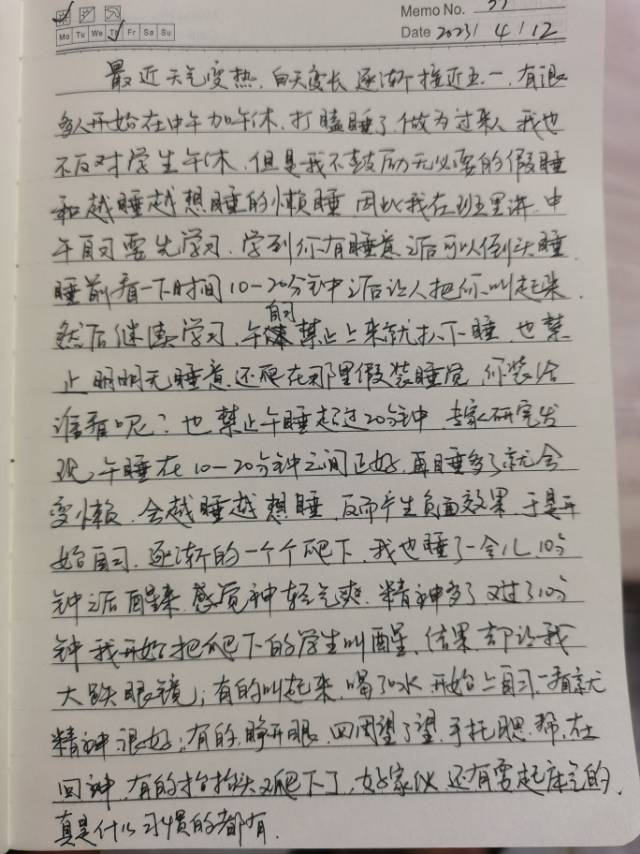 Memo No. 37
Mo Tu We Th Fr Sa Su
Date 2023 / 4 / 12
最近天气变热,白天变长,逐渐接近五一,有很
多人开始在中午加午休,打瞌睡了,做为过来人,我也
不反对学生午休,但是我不鼓励无必要的假睡
和越睡越想睡的懒睡,因此我在班里讲,中
午自习需先学习,学到你有睡意之后可以倒头睡,
睡前看一下时间10-20分钟之后让人把你叫起来,
然后继续学习,午自习禁止上来就趴下睡,也禁
止明明无睡意,还爬在那里假装睡觉,你装给
谁看呢?也禁止午睡超过20分钟,专家研究发
现,午睡在10-20分钟之间正好,再睡多了就会
变懒,会越睡越想睡,反而产生负面效果,于是开
始自习,逐渐的一个个爬下,我也睡了一会儿,10分
钟之后醒来,感觉神轻气爽,精神多了,又过了10分
钟,我开始把爬下的学生叫醒,结果却让我
大跌眼镜;有的叫起来,喝了口水,开始上自习,一看就
精神很好;有的,睁开眼,四周望了望,手托腮帮,在
回神,有的抬抬头又爬下了,好家伙,还有要起床气的,
真是什么习惯的都有.